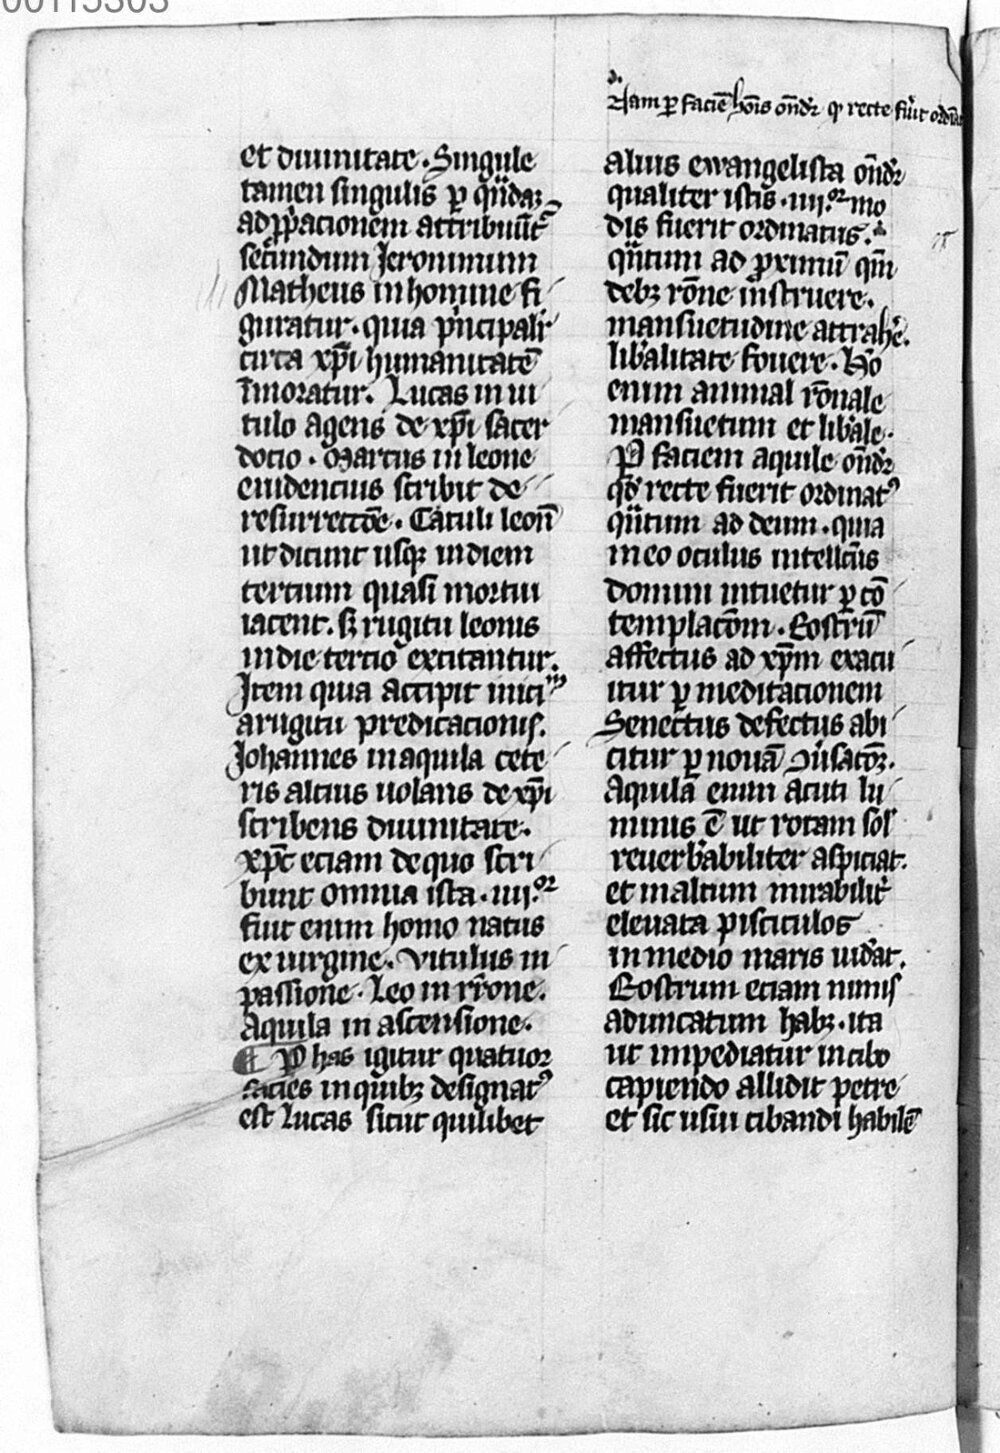 00115303
Nam ꝑ faciē hoīs on̄dr̄ ꝙ recte fuīt ordīat
et diuinitate. Singule
tamen singulis ꝑ qūdaꝫ
ad ꝓpͥacionem attribuūt᷑
secundum Jeronimum
Matheus in homine fi
guratur. quia pͥncipalr̄
circa xp̄i humanitatē
īmoratur. Lucas in ui
tulo agens de xp̄i sacer
docio. Marcus in leone
euidencius scribit de
resurrecc̄oe. Catuli leon̄
ut dicunt usqꝫ in diem
tercium quasi mortui
iacent. sꝫ rugitu leonis
in die tercio excitantur.
Item quia accipit iniciū
a rugitu predicacionis.
Johannes in aquila cete
ris alcius uolans de xp̄i
scribens diuinitate.
xp̄c eciam de quo scri
bunt omnia ista .iiij.or
fuit enim homo natus
ex uirgine. vitulus in
passione. Leo in rr̄one.
Aquila in ascensione.
¶ Ꝑ has igitur quatuor
facies in quibꝫ designatꝰ
est Lucas sicut quilibet
alius ewangelista on̄dr̄
qualiter istis .iiij.or mo
dis fuerit ordinatus.
qn̄tum ad ꝓximū qm̄
debꝫ rōne instruere.
mansuetudine attrahe᷑.
lib̄alitate fouere. Hō
enim animal rōnale
mansuetum et lib̄ale.
Ꝑ faciem aquile on̄dr̄
qd̄ recte fuerit ordinatꝰ
qn̄tum ad deum. quia
in eo oculus intellc̄us
domini intuetur ꝑ cō
templac̄om. Rostrū
affectus ad xp̄m exacu
itur ꝑ meditacionem
Senectus defectus abi
citur ꝑ nouā ꝯūsac̄oꝫ.
Aquila enim acuti lu
minis ē ut rotam sol᷑
reuerb̄abiliter aspiciat.
et in altum mirabilit᷑
eleuata pisciculos
in medio maris uid̄at.
Rostrum eciam nimis
aduncatum habꝫ. ita
ut impediatur in cibo
capiendo allidit petre
et sic usui cibandi habilē